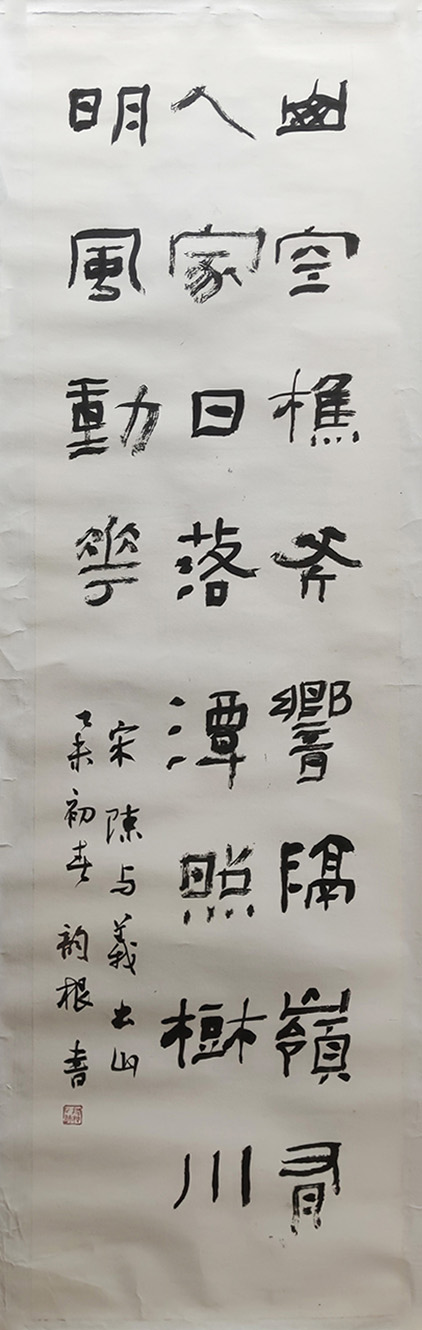 幽空樵斧響隔嶺有
人家日落潭照樹川
明風動華
宋陳与義出山
乙未初春 韵根書